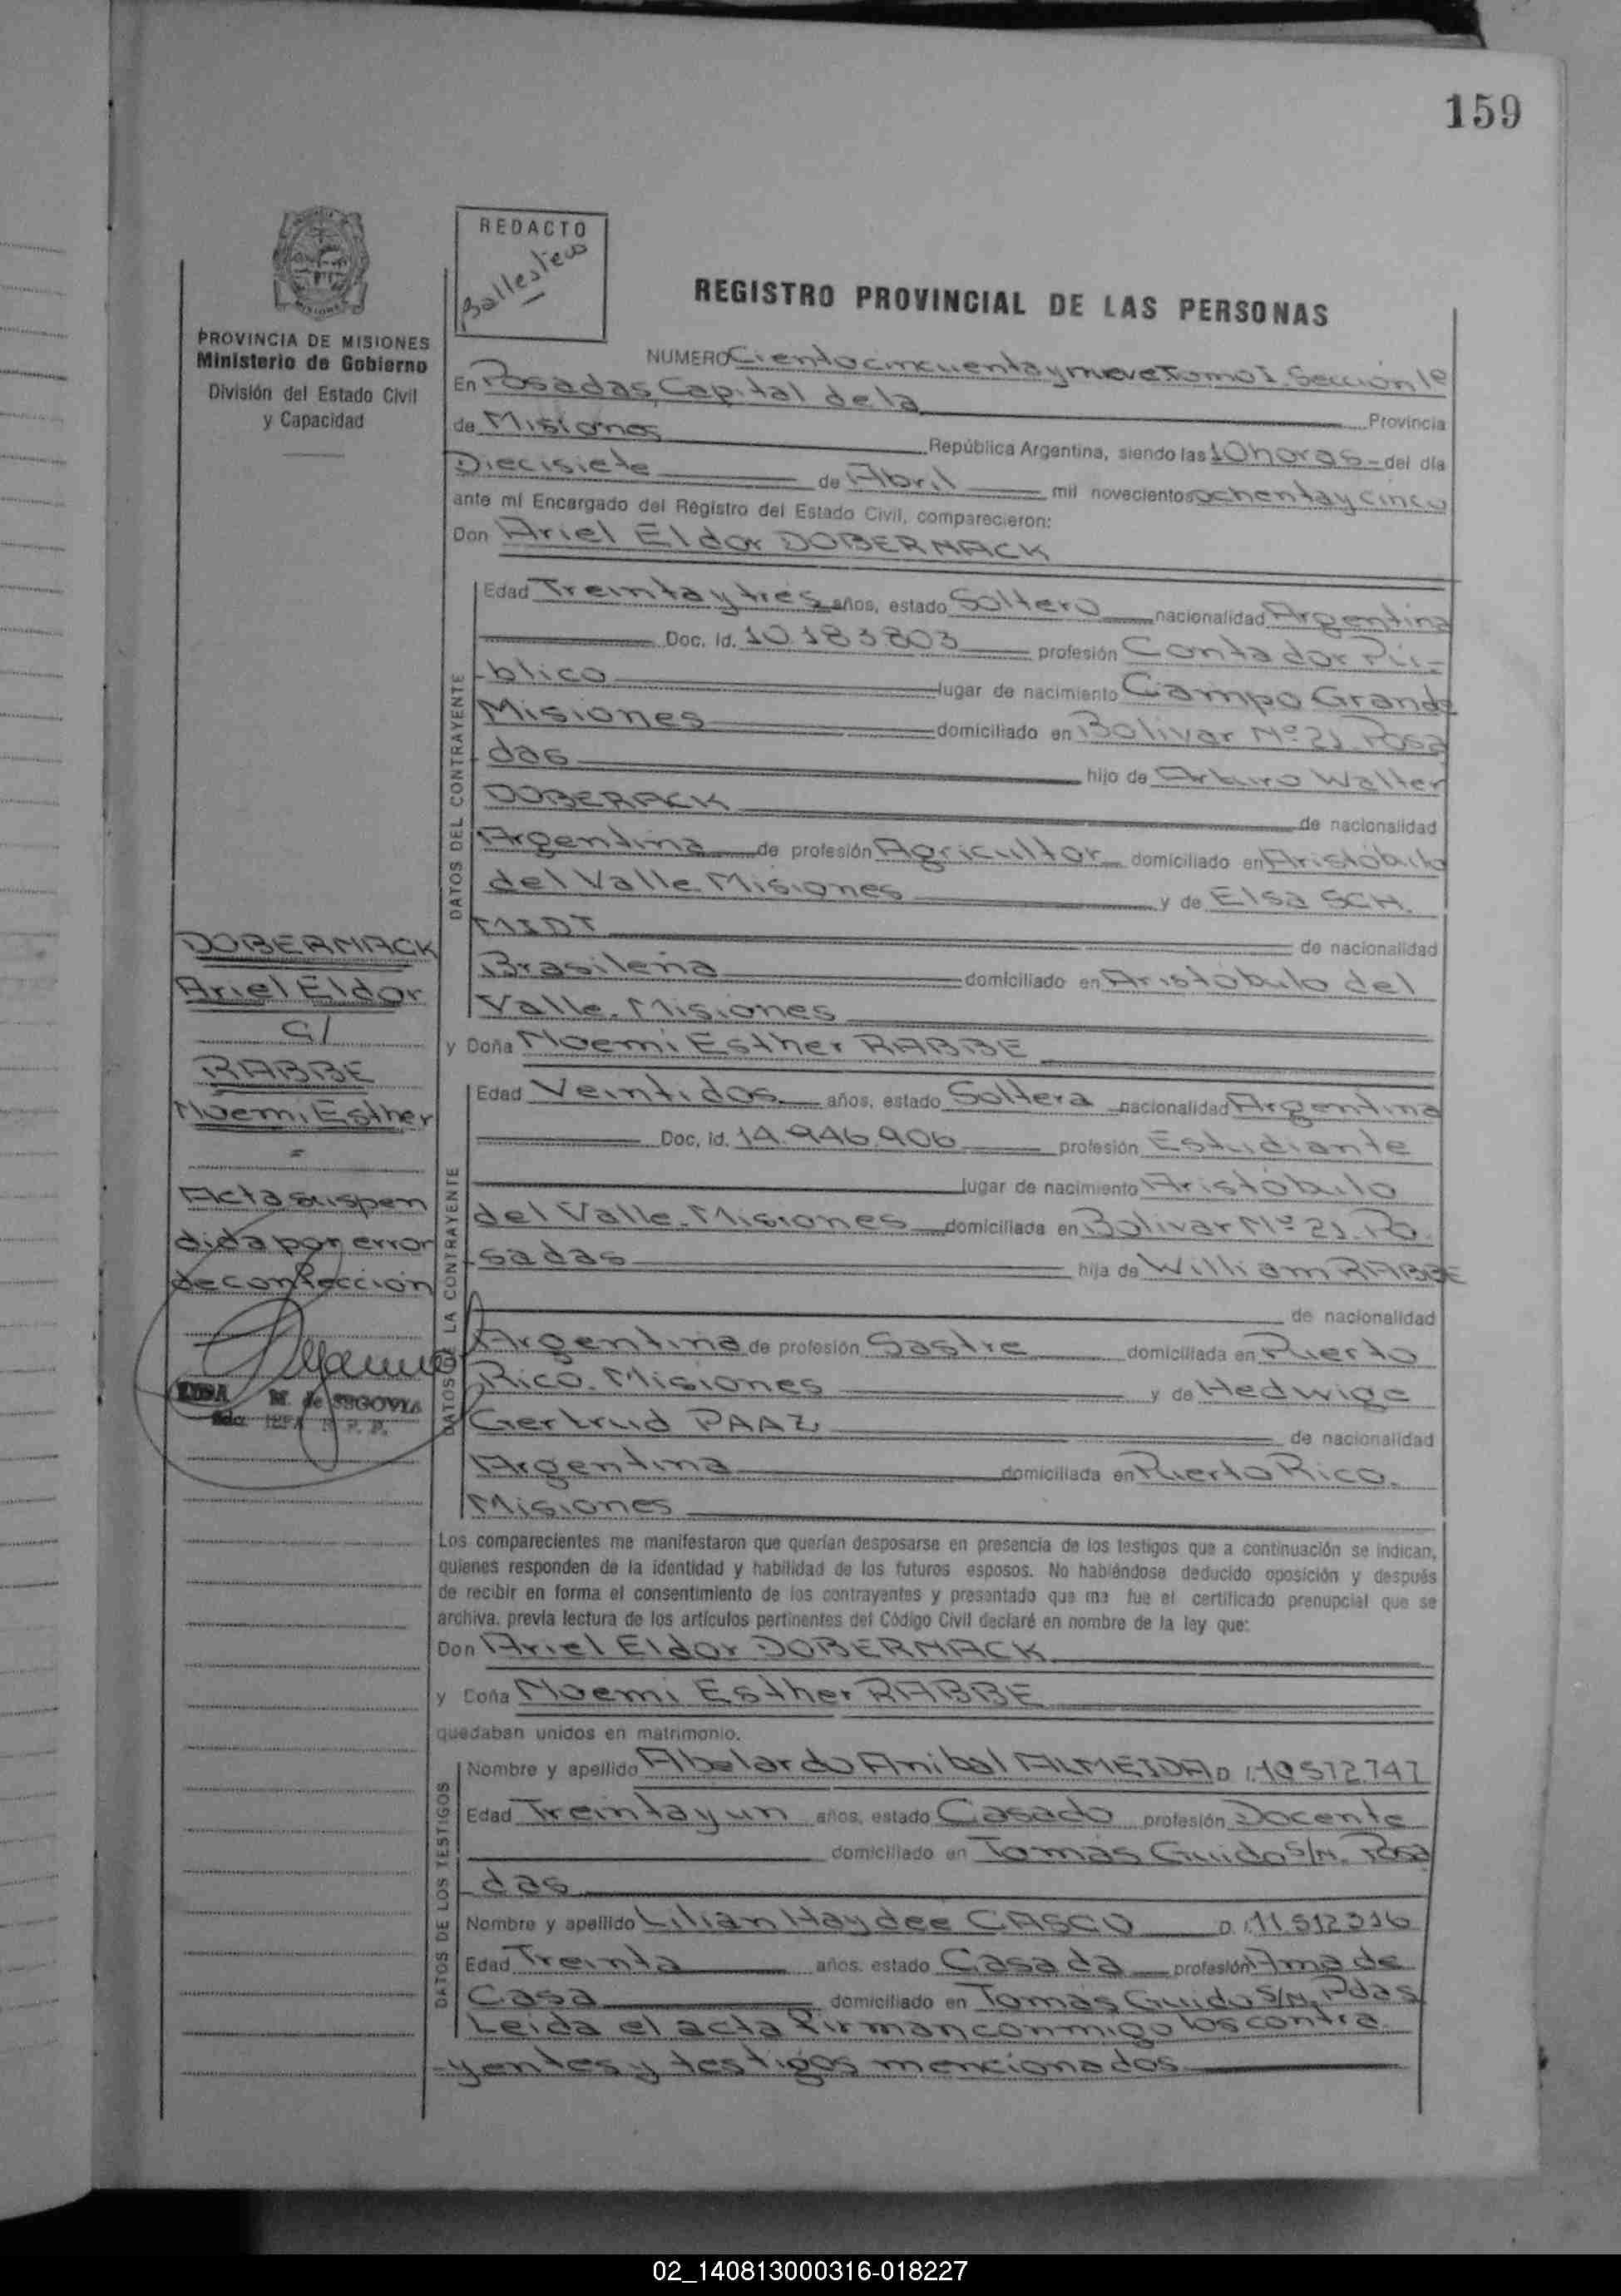 159
REDACTO
Ballesteros
REGISTRO PROVINCIAL DE LAS PERSONAS
PROVINCIA DE MISIONES
Ministerio de Gobierno
División del Estado Civil
y Capacidad
NUMERO Ciento cincuenta y nueve Tomo I. Sección 1º
En Posadas, Capital de la Provincia
de Misiones República Argentina, siendo las 10 horas - del día
Diecisiete de Abril mil novecientos ochenta y cinco
ante mí Encargado del Registro del Estado Civil, comparecieron:
Don Ariel Eldor DOBERNACK
DATOS DEL CONTRAYENTE
Edad Treinta y tres años, estado Soltero nacionalidad Argentina
Doc. Id. 10.183.803 profesión Contador Pú-
blico lugar de nacimiento Campo Grande
Misiones domiciliado en Bolivar Nº 21. Posa
das hijo de Arturo Walter
DOBERACK de nacionalidad
Argentina de profesión Agricultor domiciliado en Aristóbulo
del Valle. Misiones y de Elsa SCH.
MIDT de nacionalidad
Brasileña domiciliado en Aristóbulo del
Valle. Misiones
y Doña Noemi Esther RABBE
DATOS DE LA CONTRAYENTE
Edad Veintidos años, estado Soltera nacionalidad Argentina
Doc. id. 14.946.906 profesión Estudiante
lugar de nacimiento Aristóbulo
del Valle. Misiones domiciliada en Bolivar Nº 21. Po.
sadas hija de William RABBE
de nacionalidad
Argentina de profesión Sastre domiciliada en Puerto
Rico. Misiones y de Hedwige
Gertrud PAAZ de nacionalidad
Argentina domiciliada en Puerto Rico.
Misiones
DOBERNACK
Ariel Eldor
c/
RABBE
Noemi Esther
=
Acta suspen
dida por error
de confección
M. de SEGOVIA
Los comparecientes me manifestaron que querían desposarse en presencia de los testigos que a continuación se indican,
quienes responden de la identidad y habilidad de los futuros esposos. No habiéndose deducido oposición y después
de recibir en forma el consentimiento de los contrayentes y presentado que me fue el certificado prenupcial que se
archiva. previa lectura de los artículos pertinentes del Código Civil declaré en nombre de la ley que:
Don Ariel Eldor DOBERNACK
y Doña Noemi Esther RABBE
quedaban unidos en matrimonio.
DATOS DE LOS TESTIGOS
Nombre y apellido Abelardo Anibal ALMEIDA D.I. 10.572.747
Edad Treinta y un años, estado Casado profesión Docente
domiciliado en Tomás Guido S/N. Posa
das
Nombre y apellido Lilian Haydee CASCO D.I. 11.512.316
Edad Treinta años, estado Casada profesión Ama de
Casa domiciliado en Tomás Guido S/N. Pdas
Leída el acta firman conmigo los contra
yentes y testigos mencionados
02_140813000316-018227